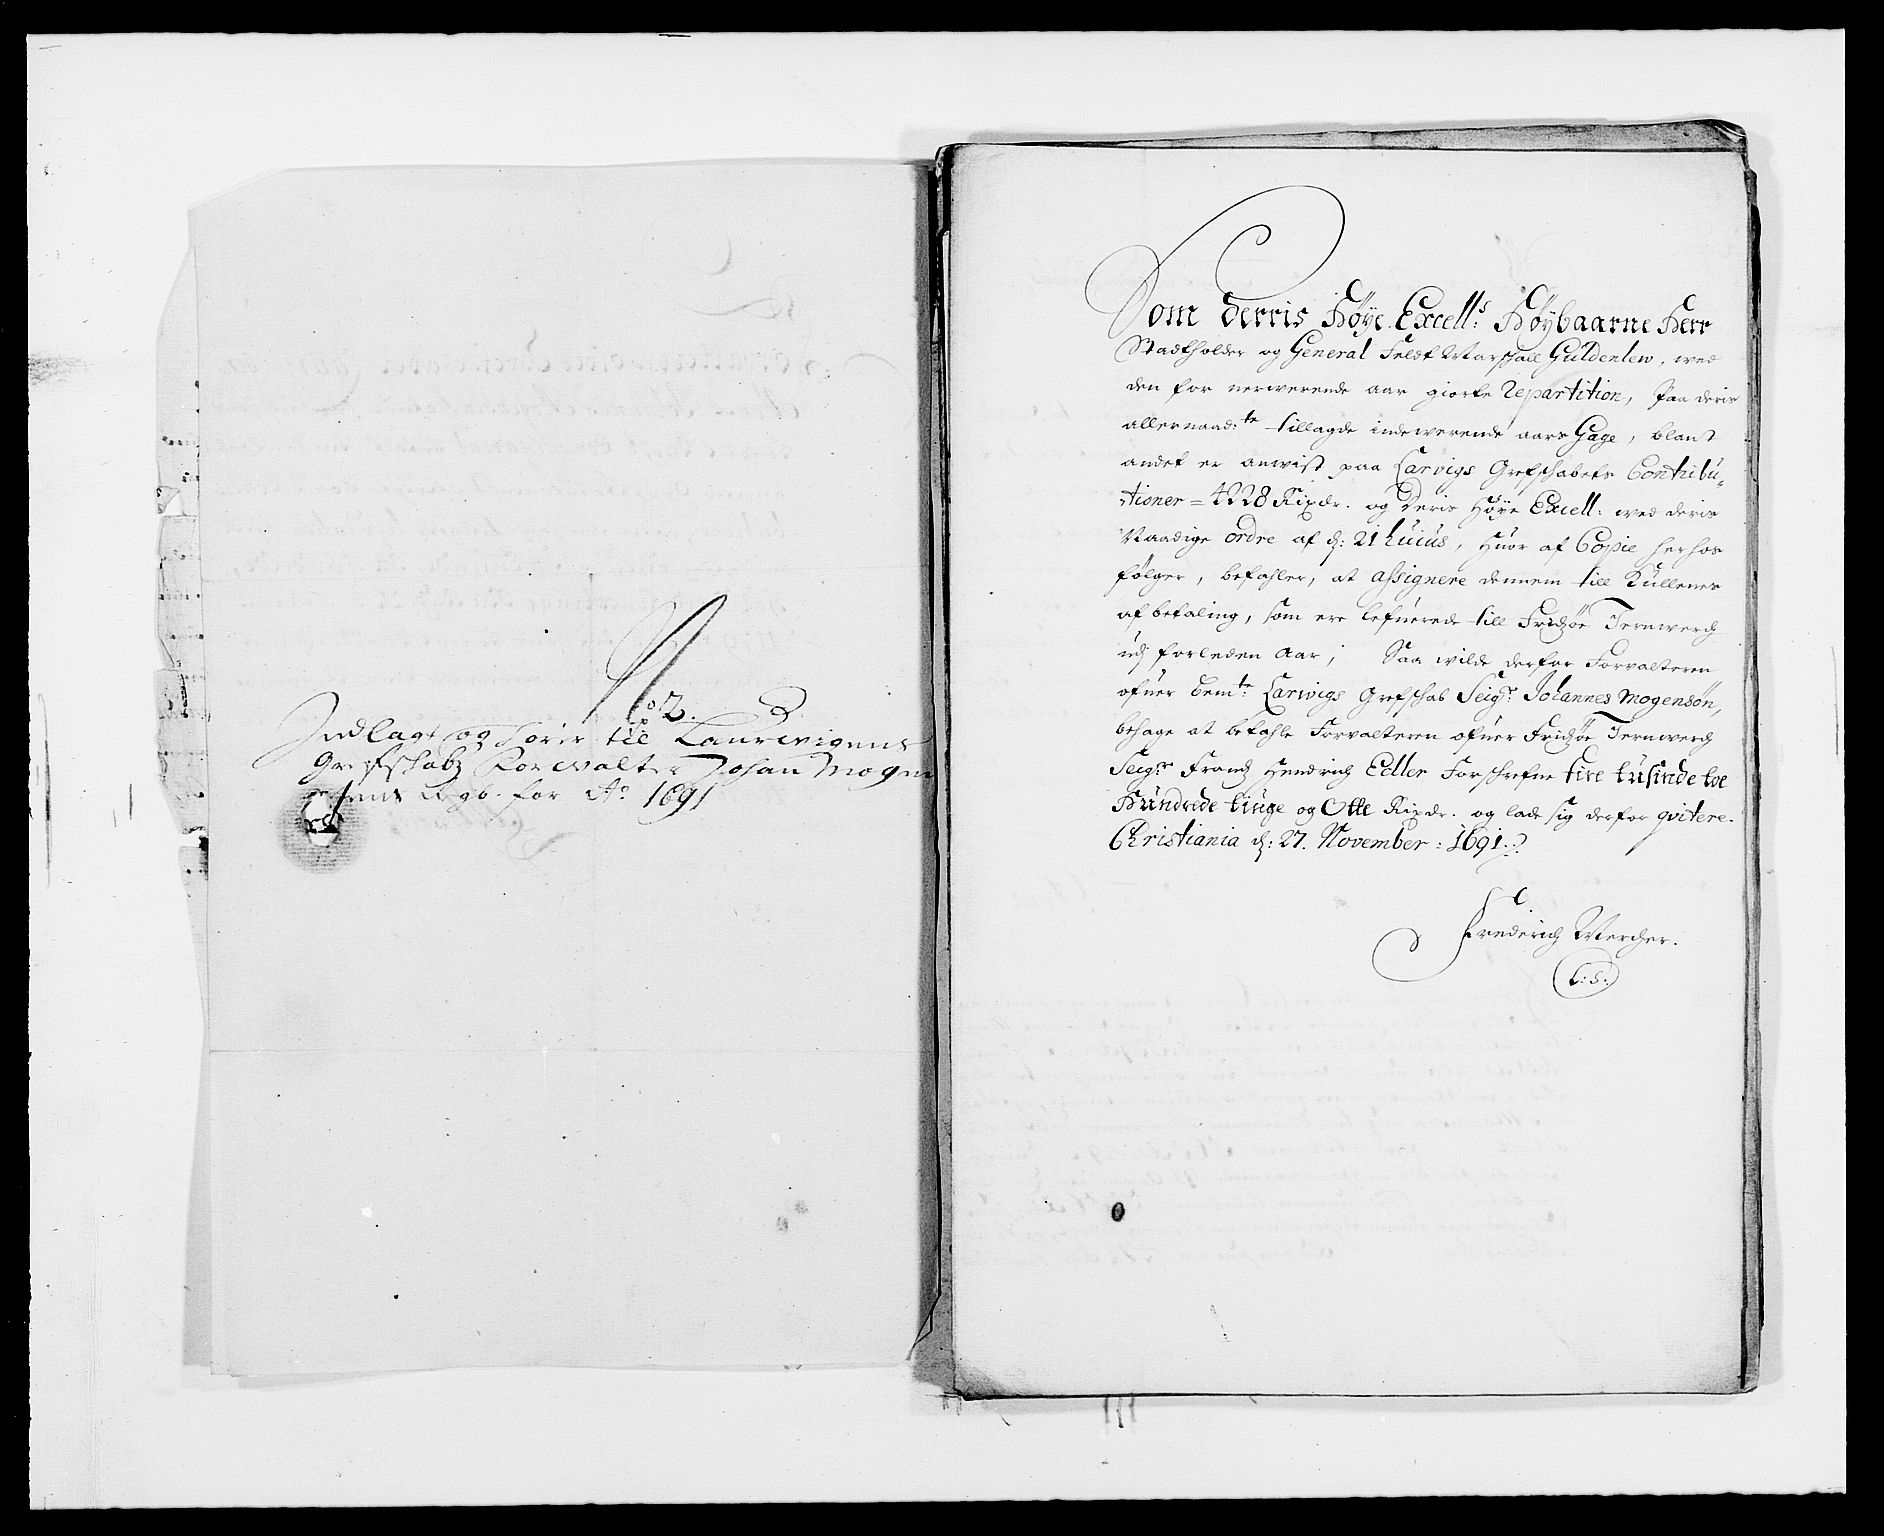 No 2.
Indlagt og hörir til Laurwigens
Grefskabs Forwalter Johan Mogen
sens Regb. for Ao 1691
Som Derris Höye Excell:s Höybaarne Herr
Stadtholder og General Feldt Marschall Guldenlew, wed
den for nerwerende aar giorte Repartition, paa deris
allernaad:te tillagde indewerende aars Gage, blant
andet er anwist paa Larvigs Grefschabets Contribu-
tioner = 4228 Rixdr. og Deris Höye Excell: wed deris
Naadige ordre af d: 21 huius, huor af Copie herhos
fölger, befahler, at assignere dennem till Kullenes
afbetaling, som ere lefuerede till Fridzöe Jernwerch
udj forleden Aar; Saa wilde derfor Forvalteren
ofuer bem:te Larwigs Grefschab Seig:r Johannes Mogensön,
behage at betahle Forvalteren ofuer Fridzöe Jernwerch
Seig:r Frandz Hendrich Edler Forschrefne fire tusinde toe
Hundrede tiuge og Otte Rixdr. og lade sig derfor qvitere.
Christiania d: 27. November: 1691.
Frederich Mercher.
L:S: